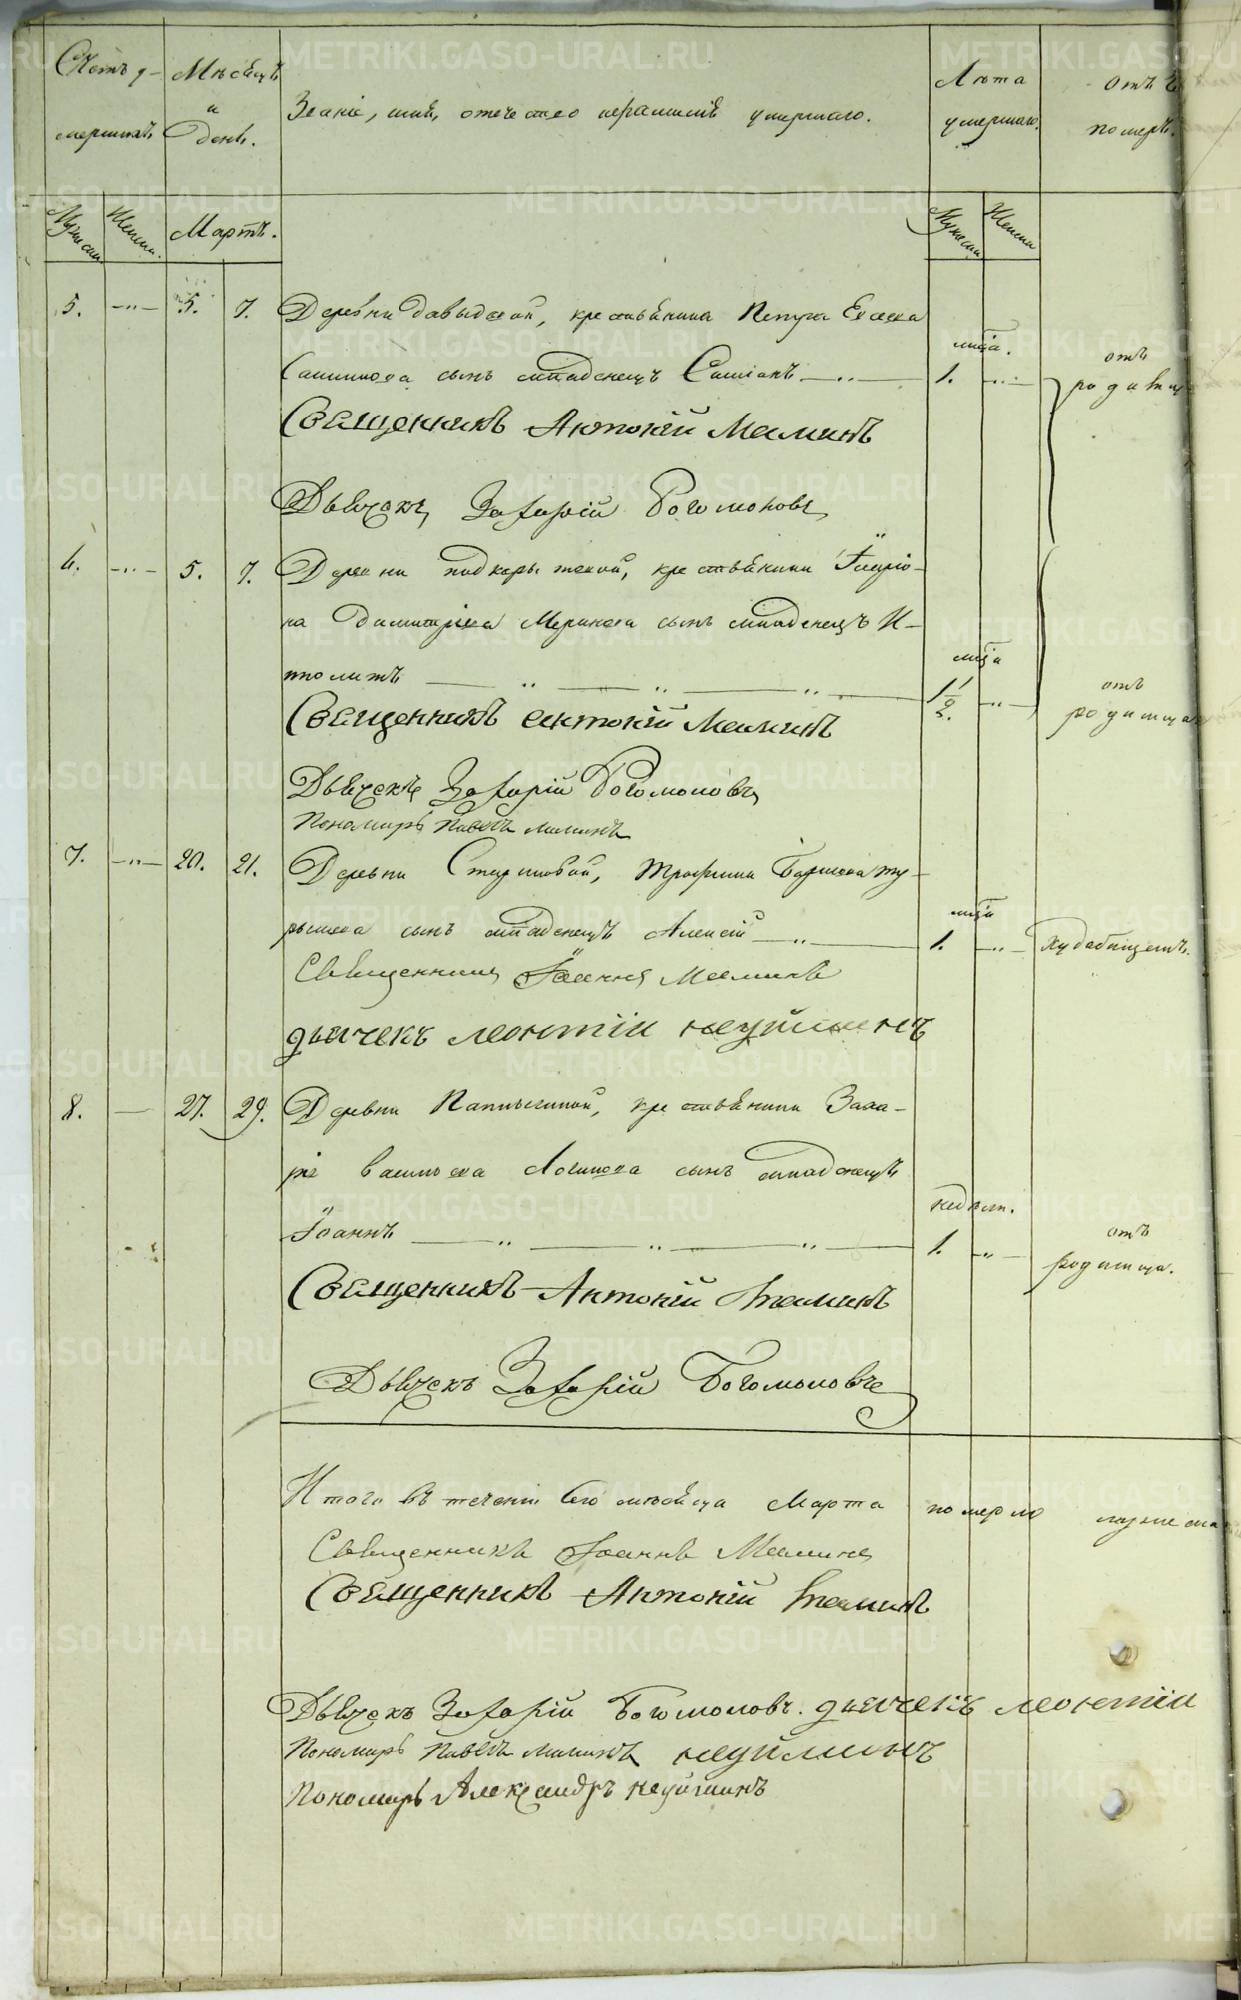 Счетъ у-
мершихъ
Мѣсяцъ
и
День.
Званіе, имя, отечество и фамилія умершаго.
Лѣта
умершаго.
отъ чего
померъ.
Мужеска
Женска.
Мартъ.
Мужеска
Женска
5. —"— 5. 7. Деревни Давыдовой, крестьянина Петра
сынъ младенецъ 1. —"—
отъ
Священникъ Антоній Маминъ
Дьячекъ Захарій Богомоловъ
6. —"— 5. 7. Деревни крестьянина Иларіо-
на Димитріева Меринова сынъ младенецъ И-
полит ъ — " — " — " — 1 1/2. —"—
отъ
родимца
Священникъ Антоній Маминъ
Дьячекъ Захарій Богомоловъ
Пономарь Павелъ Маминъ
7. —"— 20. 21. Деревни Трофима
сынъ младенецъ Алексій —"— 1. —"—
Священникъ Іоаннъ Маминъ
дьячекъ леонтіи неуйминъ
8. — 27. 29. Деревни крестьянина Заха-
рія Васильева Логинова сынъ младенецъ
недѣл.
Іоаннъ — " — " — " — 1. "—
отъ
родимца.
Священникъ Антоній Маминъ
Дьячекъ Захарій Богомоловъ
Итого въ теченіи сего мѣсяца Марта померло мужеска
Священникъ Іоаннъ Маминъ
Священникъ Антоній Маминъ
Дьячекъ Захарій Богомоловъ. дьячекъ леонтіи
Пономарь Павелъ Маминъ неуйминъ
Пономарь Александръ неуйминъ
METRIKI.GASO-URAL.RU